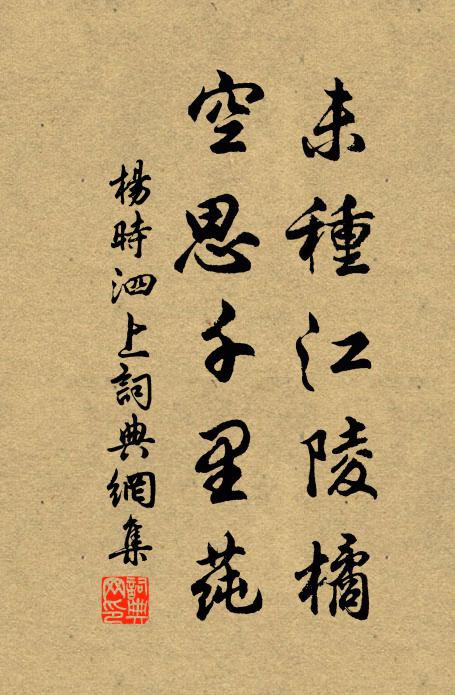 未種江陵橘
空思千里蒓
楊時泗上詞典網集
詞典網印